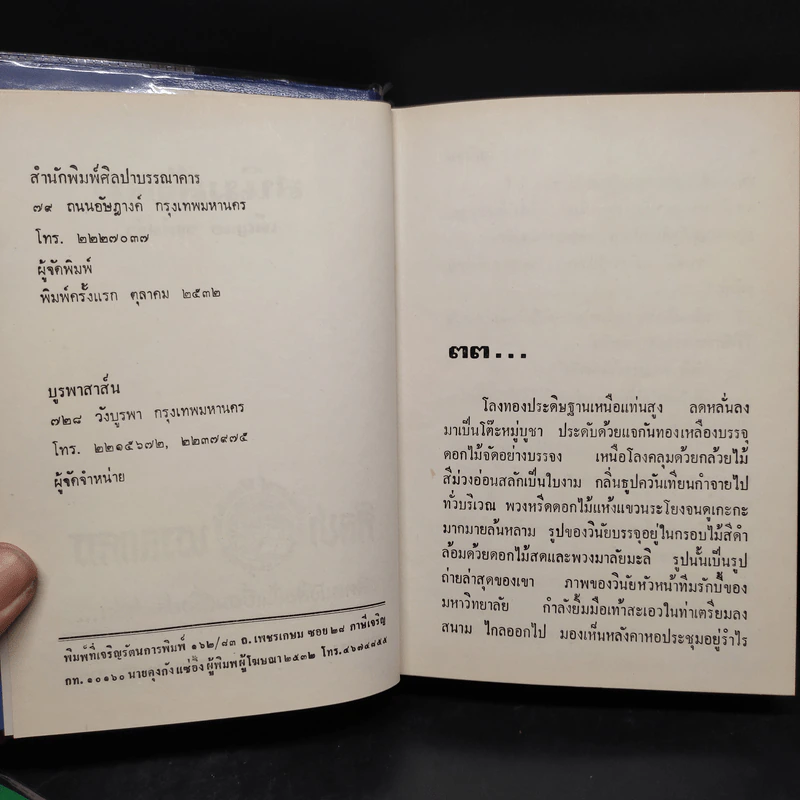 สำนักพิมพ์ศิลปาบรรณาคาร
๗๙ ถนนอัษฎางค์ กรุงเทพมหานคร
โทร. ๒๒๒๗๐๓๗
ผู้จัดพิมพ์
พิมพ์ครั้งแรก ตุลาคม ๒๕๓๒
บูรพาสาส์น
๗๒๘ วังบูรพา กรุงเทพมหานคร
โทร. ๒๒๑๕๖๗๒, ๒๒๓๗๙๗๕
ผู้จัดจำหน่าย
พิมพ์ที่เจริญรัตนการพิมพ์ ๑๖๒/๘๓ ถ.เพชรเกษม ซอย ๒๘ ภาษีเจริญ
กท. ๑๐๑๖๐ นายคุงกัง แซ่อึ้ง ผู้พิมพ์ผู้โฆษณา ๒๕๓๒ โทร.๔๖๗๔๘๕๕
๓๓...
โลงทองประดิษฐานเหนือแท่นสูง ลดหลั่นลง
มาเป็นโต๊ะหมู่บูชา ประดับด้วยแจกันทองเหลืองบรรจุ
ดอกไม้จัดอย่างบรรจง เหนือโลงคลุมด้วยกล้วยไม้
สีม่วงอ่อนสลักเป็นใบงาม กลิ่นธูปควันเทียนกำจายไป
ทั่วบริเวณ พวงหรีดดอกไม้แห้งแขวนระโยงจนดูเกะกะ
มากมายล้นหลาม รูปของวินัยบรรจุอยู่ในกรอบไม้สีดำ
ล้อมด้วยดอกไม้สดและพวงมาลัยมะลิ รูปนั้นเป็นรูป
ถ่ายล่าสุดของเขา ภาพของวินัยหัวหน้าทีมรักบี้ของ
มหาวิทยาลัย กำลังยิ้มมือเท้าสะเอวในท่าเตรียมลง
สนาม ไกลออกไป มองเห็นหลังคาหอประชุมอยู่รำไร